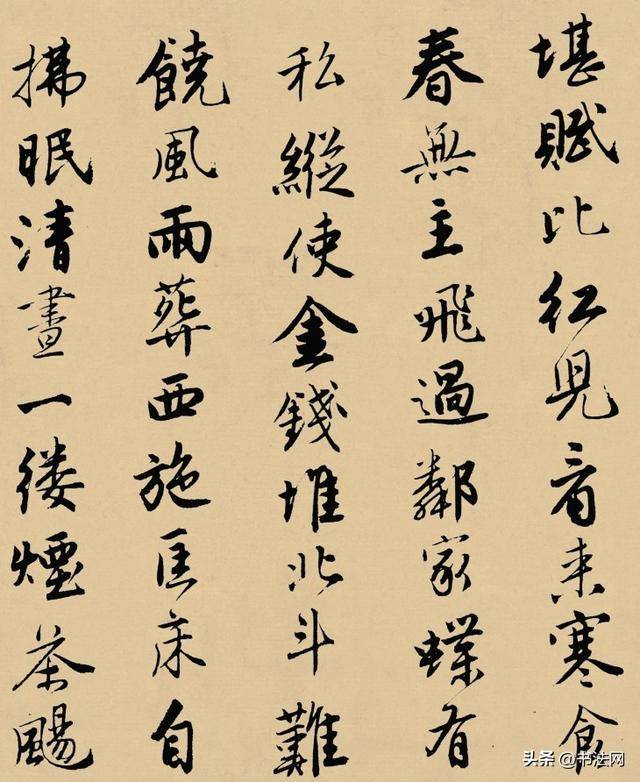 堪賦比紅兒看来寒食
春無主飛過鄰家蝶有
私縱使金錢堆北斗難
饒風雨葬西施匡床自
拂眠清晝一縷煙茶颺
头条 @书法网